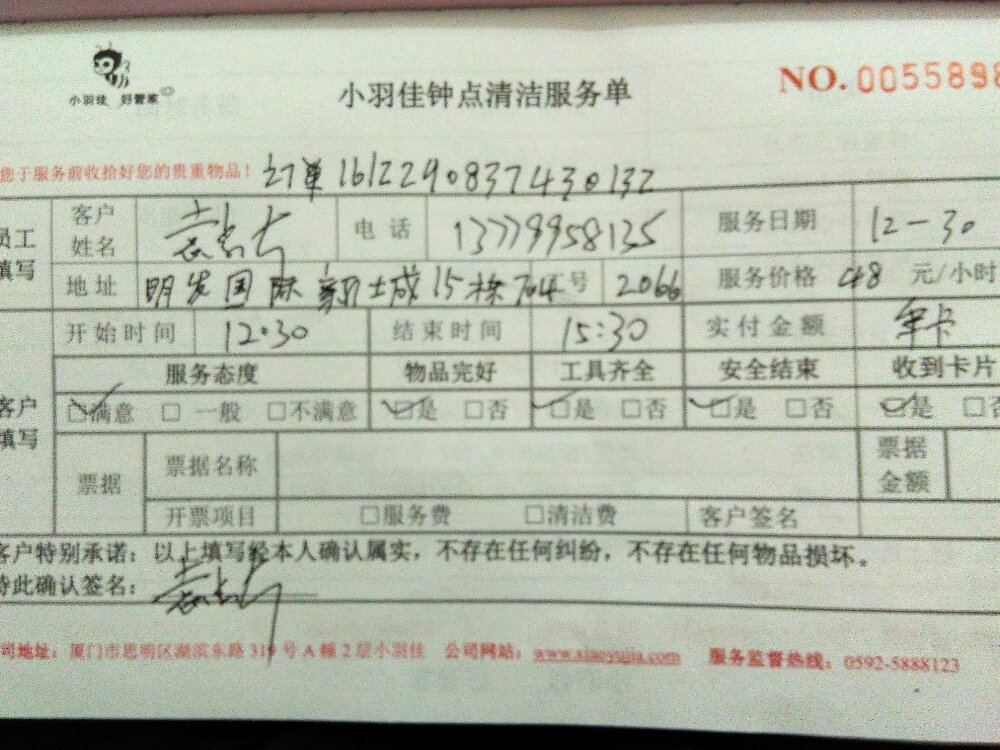 小羽佳 好管家
小羽佳钟点清洁服务单
NO. 0055898
您于服务前收拾好您的贵重物品！ 订单1612290837430132
员工填写
客户姓名 电话 13779958135 服务日期 12-30
地址 明发国际新城15栋704 号 2066 服务价格 48 元/小时
开始时间 12:30 结束时间 15:30 实付金额 年卡
客户填写
服务态度 物品完好 工具齐全 安全结束 收到卡片
☑满意 □一般 □不满意 ☑是 □否 ☑是 □否 ☑是 □否 ☑是 □否
票据 票据名称 票据金额
开票项目 □服务费 □清洁费 客户签名
客户特别承诺：以上填写经本人确认属实，不存在任何纠纷，不存在任何物品损坏。
特此确认签名：
司地址：厦门市思明区湖滨东路319号A幢2层小羽佳 公司网站：www.xiaoyujia.com 服务监督热线：0592-5888123